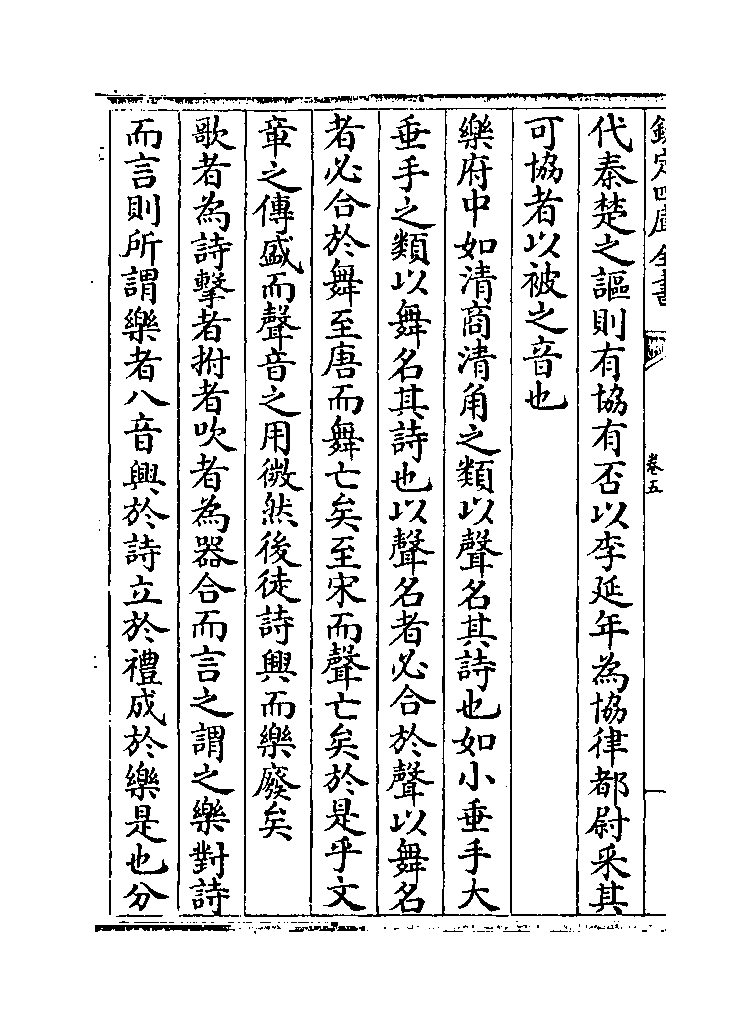 欽定四庫全書
卷五
代秦楚之謳則有協有否以李延年為協律都尉采其
可協者以被之音也
樂府中如清商清角之類以聲名其詩也如小垂手大
垂手之類以舞名其詩也以聲名者必合於聲以舞名
者必合於舞至唐而舞亡矣至宋而聲亡矣於是乎文
章之傳盛而聲音之用微然後徒詩興而樂廢矣
歌者為詩擊者拊者吹者為器合而言之謂之樂對詩
而言則所謂樂者八音興於詩立於禮成於樂是也分